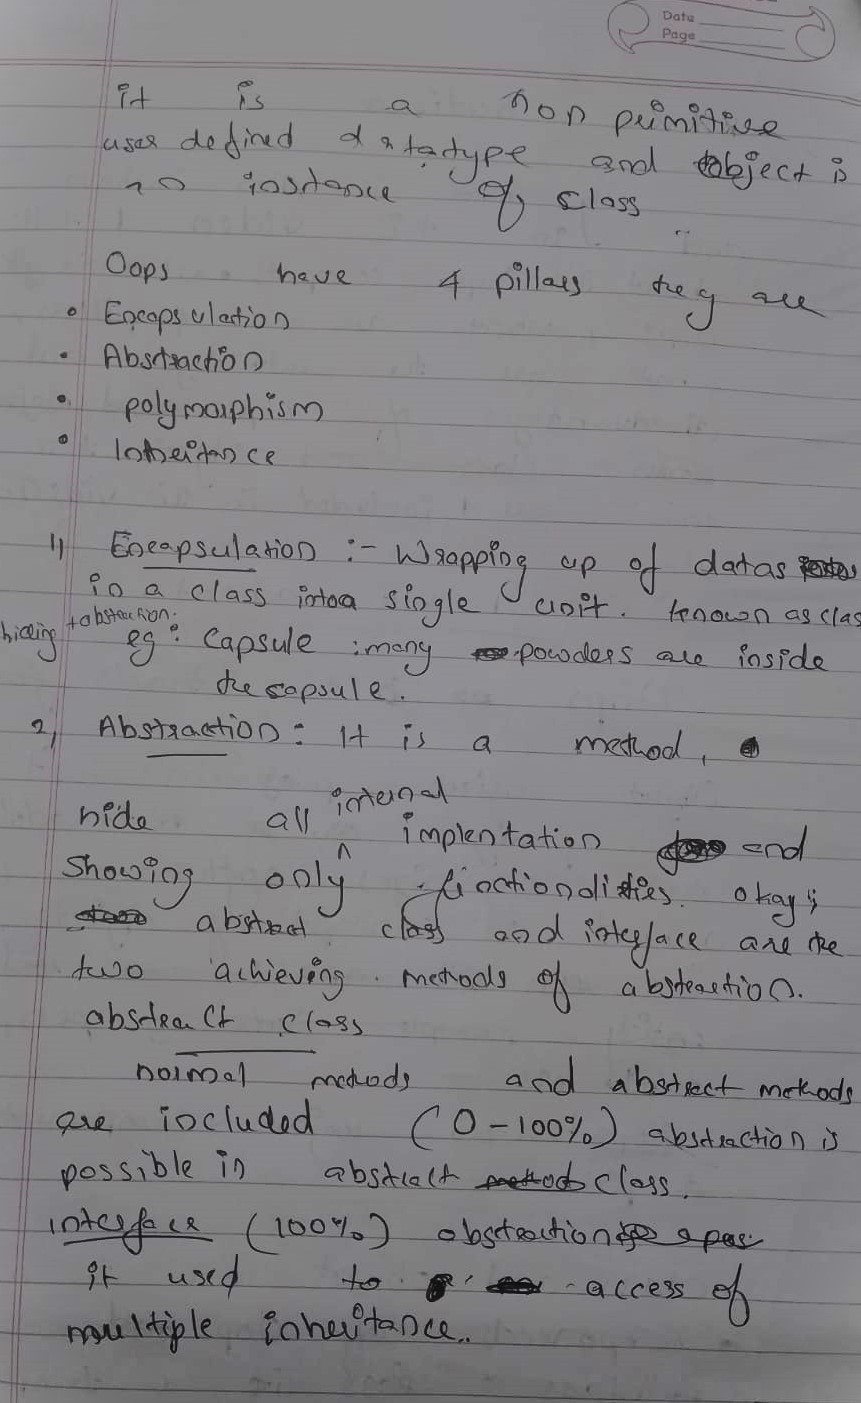 Date
Page
it is a non primitive
user defined datatype and object is
an instance of class
Oops have 4 pillars they are
• Encapsulation
• Abstraction
• polymorphism
• Inheritance
1) Encapsulation :- Wrapping up of datas
in a class intoa single unit. known as clas
hiding + abstraction.
eg: Capsule : many powders are inside
the capsule.
2) Abstraction : It is a method,
hide all internal implentation and
showing only functionalities. okay;
abstract class and interface are the
two achieving methods of abstraction.
abstract class
normal methods and abstract methods
are included (0-100%) abstraction is
possible in abstract class.
interface (100%) abstraction
it used to access of
multiple inheritance.